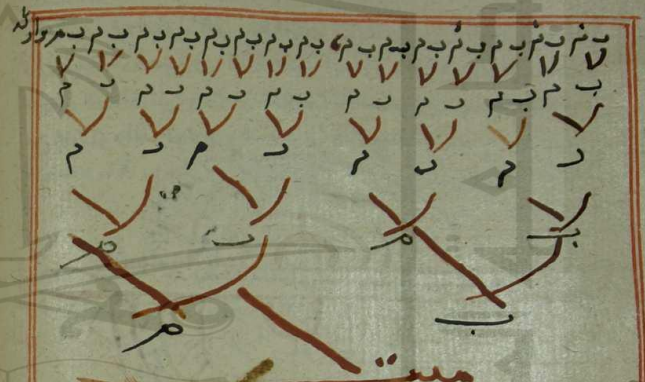 ب م ب م ب م ب م ب م ب م ب م ب م ب م ب م ب م ب م ب م ب م ب
ب م ب م ب م ب م ب م ب م ب م ب م
ب م ب م ب م ب م
ب م ب م
ب م
ميت